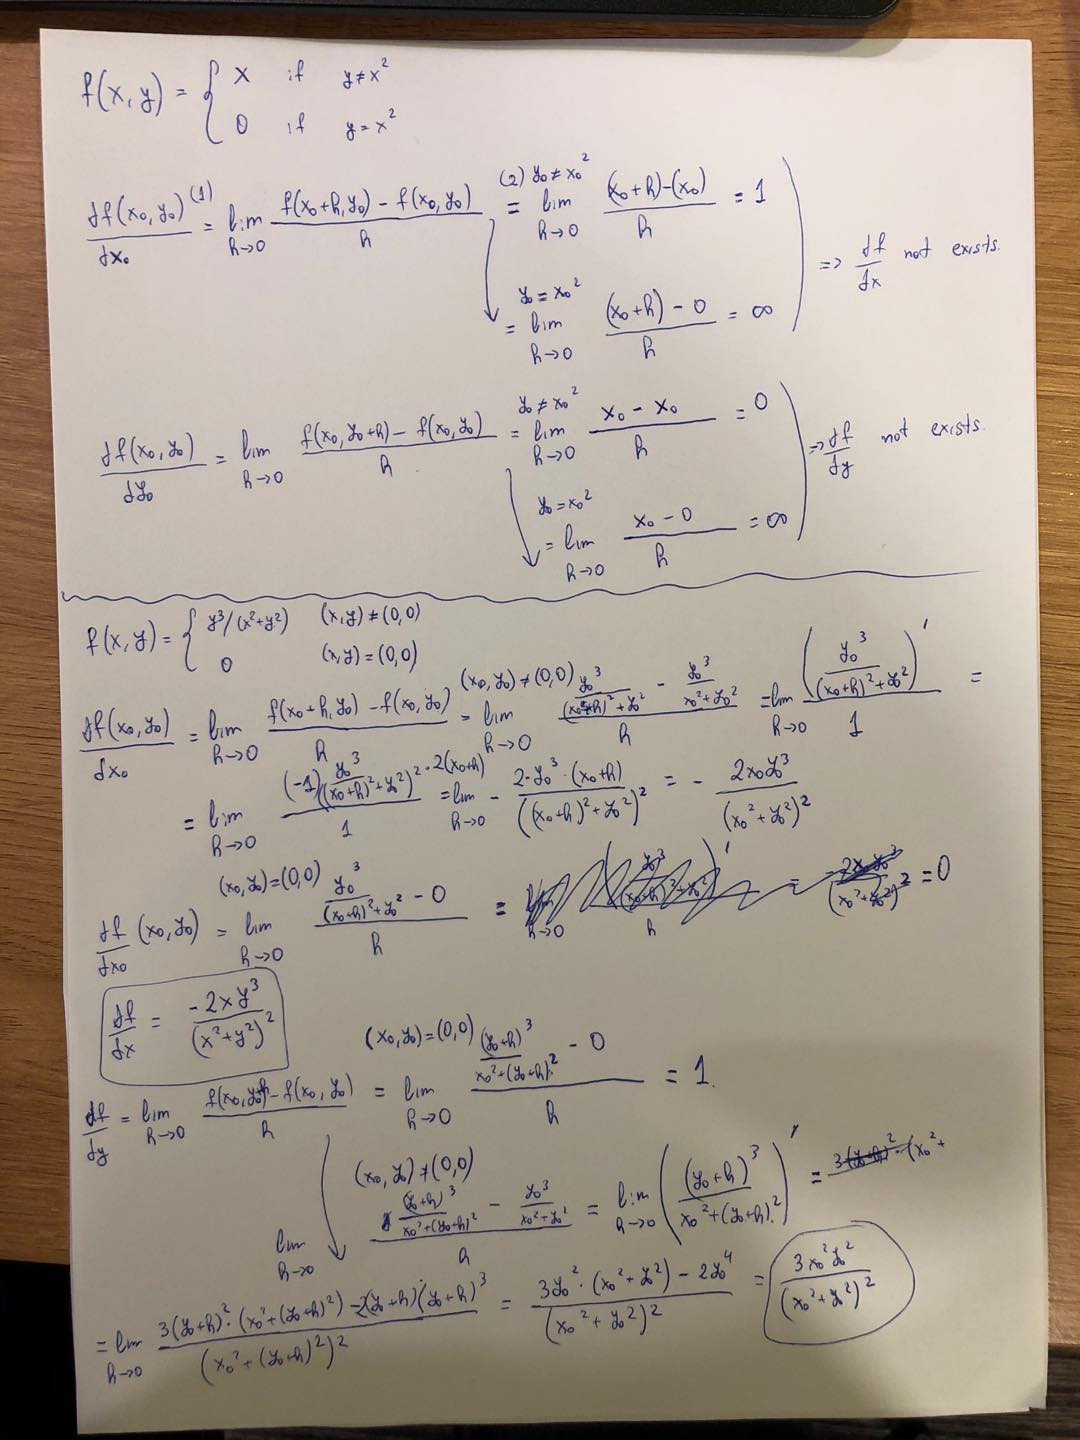 f(x, y) = { x if y ≠ x²
0 if y = x²
df(x₀, y₀)/dx₀ =⁽¹⁾ lim h→0 (f(x₀+h, y₀) - f(x₀, y₀))/h =(2) y₀ ≠ x₀² lim h→0 ((x₀+h)-(x₀))/h = 1
y₀ = x₀² = lim h→0 ((x₀+h) - 0)/h = ∞
=> df/dx not exists.
df(x₀, y₀)/dy₀ = lim h→0 (f(x₀, y₀+h) - f(x₀, y₀))/h = y₀ ≠ x₀² lim h→0 (x₀ - x₀)/h = 0
y₀ = x₀² = lim h→0 (x₀ - 0)/h = ∞
=> df/dy not exists.
f(x, y) = { y³/(x²+y²) (x,y) ≠ (0,0)
0 (x,y) = (0,0)
df(x₀, y₀)/dx₀ = lim h→0 (f(x₀+h, y₀) - f(x₀, y₀))/h = (x₀, y₀) ≠ (0,0) lim h→0 (y₀³/((x₀+h)²+y₀²) - y₀³/(x₀²+y₀²))/h = lim h→0 (y₀³/((x₀+h)²+y₀²))'/1 =
= lim h→0 ((-1) y₀³/((x₀+h)²+y₀²)² · 2(x₀+h))/1 = lim h→0 - (2·y₀³·(x₀+h))/((x₀+h)²+y₀²)² = - 2x₀y₀³/(x₀²+y₀²)²
(x₀, y₀) = (0,0)
df/dx₀ (x₀, y₀) = lim h→0 (y₀³/((x₀+h)²+y₀²) - 0)/h = = 0
df/dx = -2xy³/(x²+y²)²
df/dy = lim h→0 (f(x₀, y₀+h) - f(x₀, y₀))/h = (x₀, y₀) = (0,0) lim h→0 ((y₀+h)³/(x₀²+(y₀+h)²) - 0)/h = 1.
(x₀, y₀) ≠ (0,0)
lim h→0 ((y₀+h)³/(x₀²+(y₀+h)²) - y₀³/(x₀²+y₀²))/h = lim h→0 ((y₀+h)³/(x₀²+(y₀+h)²))' = 3(y₀+h)²·(x₀²+
= lim h→0 (3(y₀+h)²·(x₀²+(y₀+h)²) - 2(y₀+h)(y₀+h)³)/(x₀²+(y₀+h)²)² = (3y₀²·(x₀²+y₀²) - 2y₀⁴)/(x₀²+y₀²)² = 3x₀²y₀²/(x₀²+y₀²)²